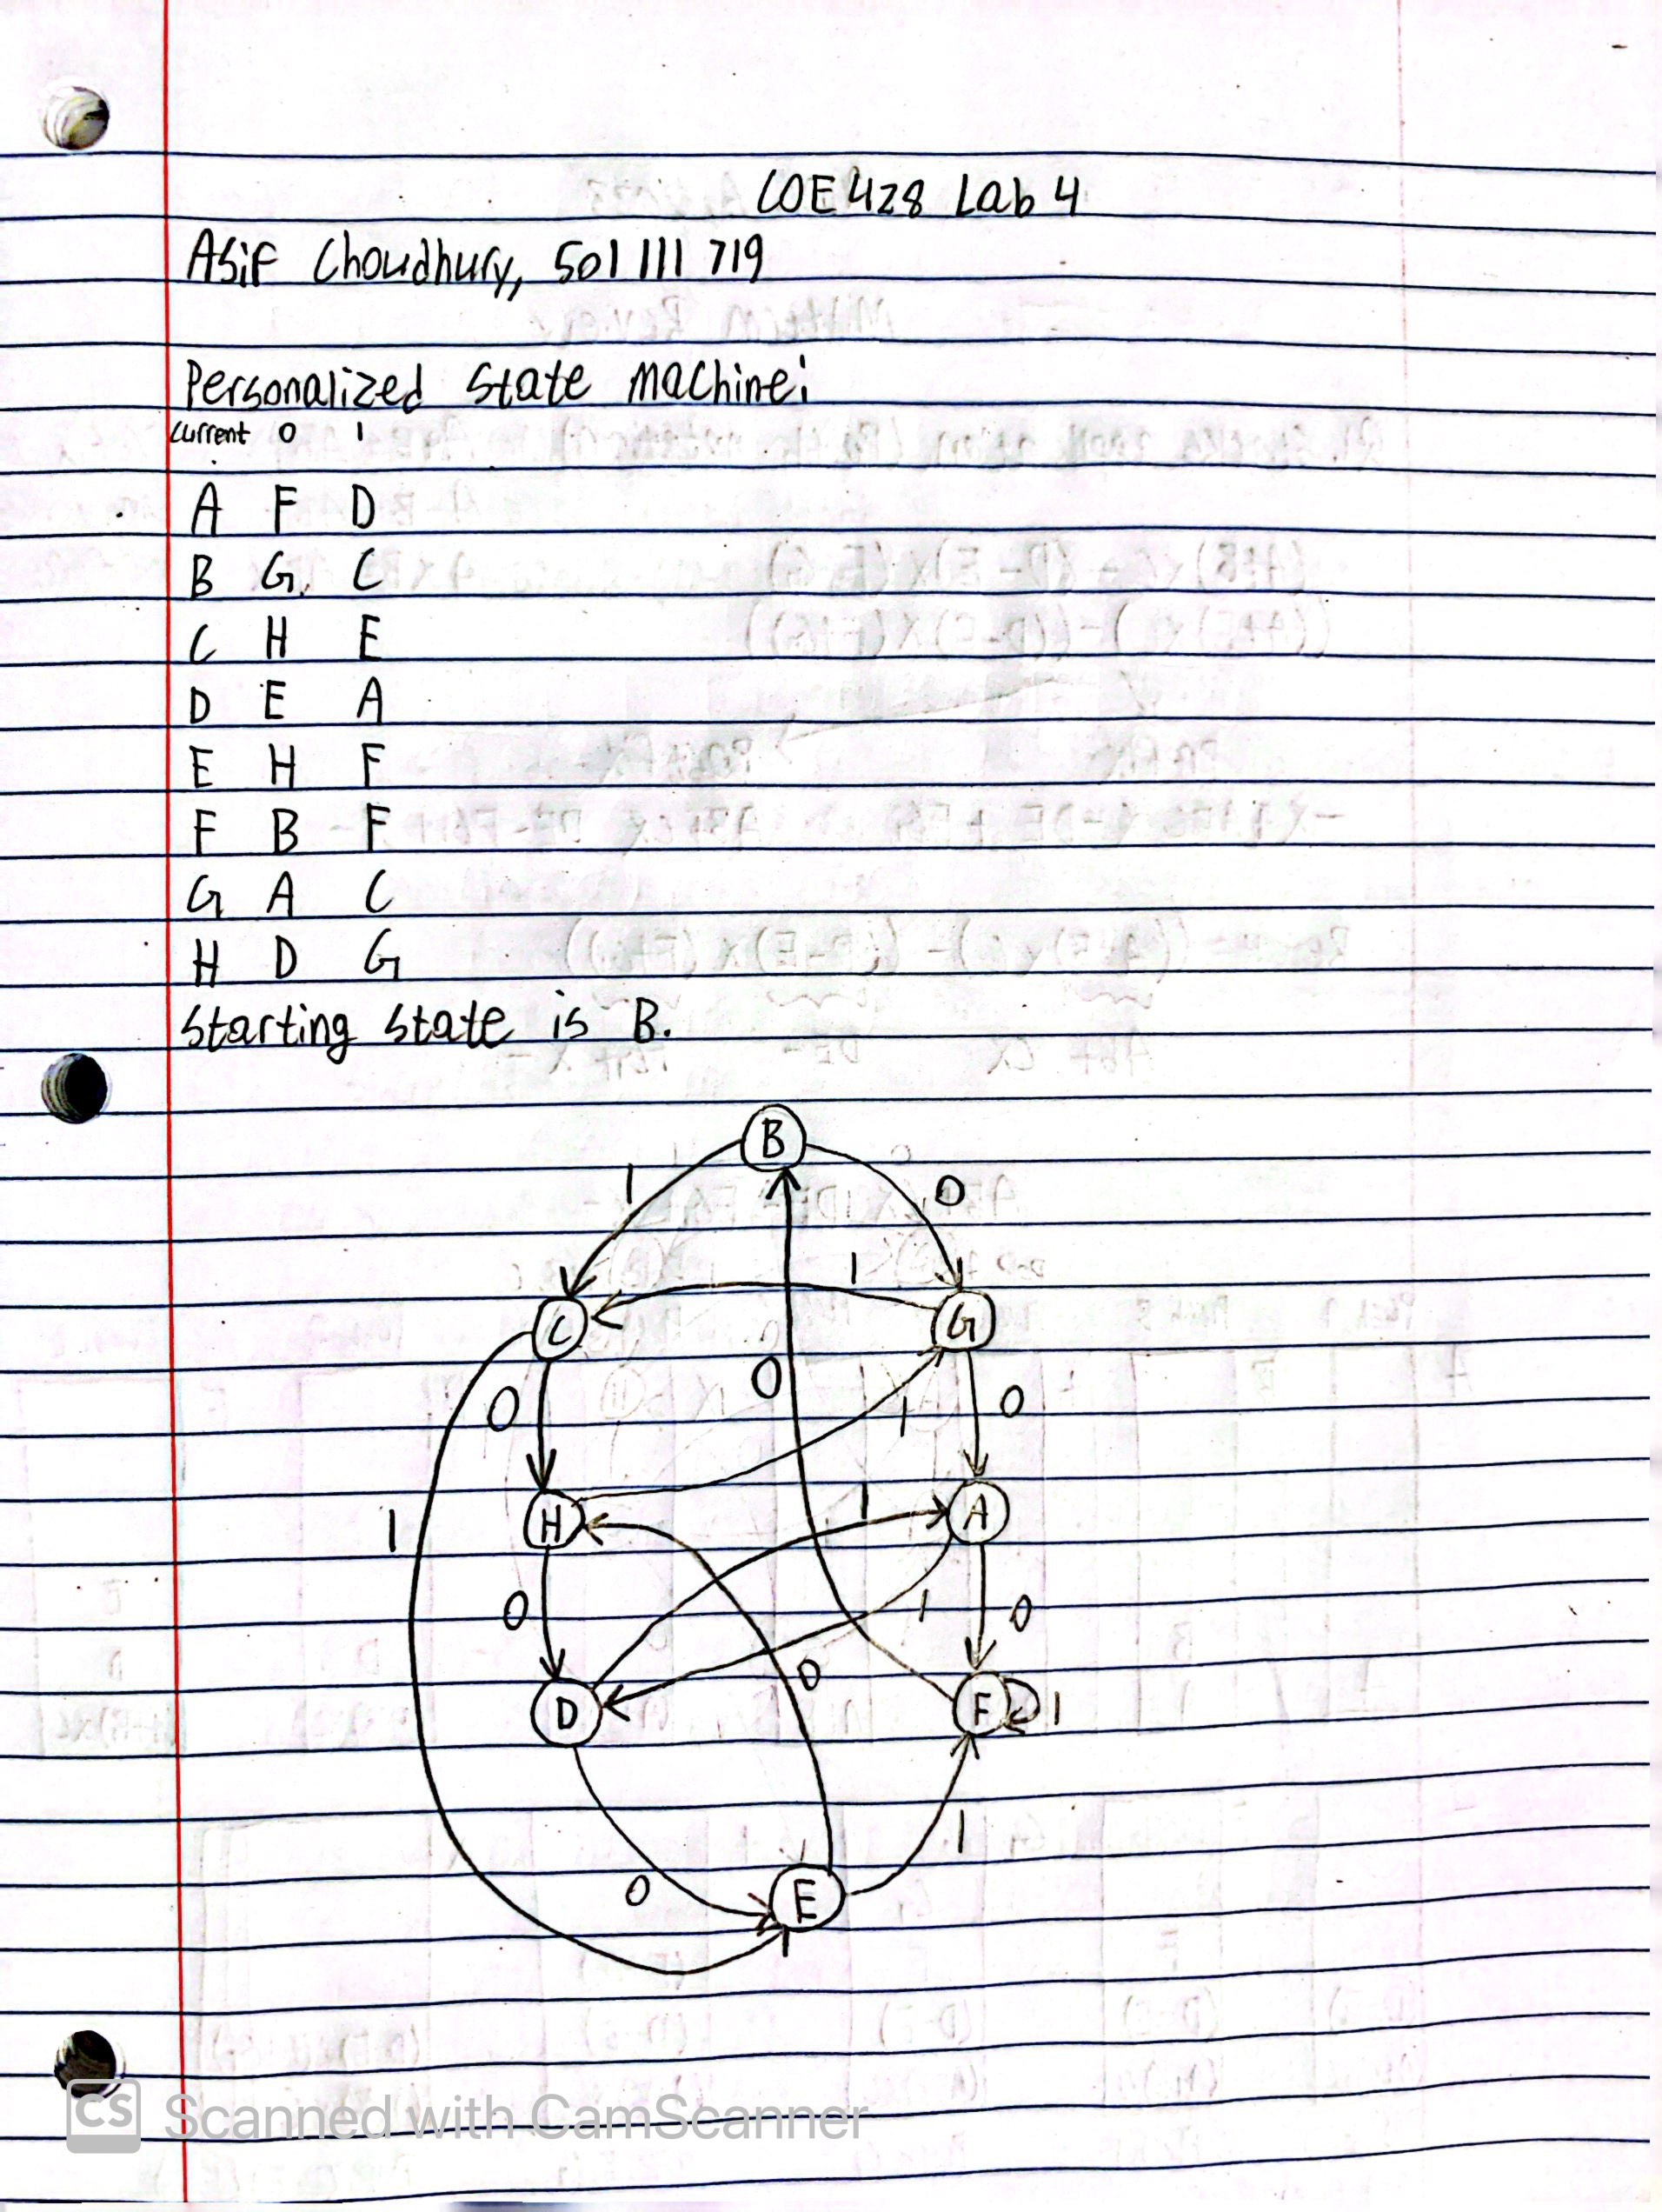 COE428 Lab 4
Asif Choudhury, 501 111 719
Personalized State Machine:
Current 0 1
A F D
B G C
C H E
D E A
E H F
F B F
G A C
H D G
Starting state is B.
B
1 0
1
C G
0 0 0
1
H 1 A
1
0 1 0
0
D F 1
1
0 E
CS Scanned with CamScanner